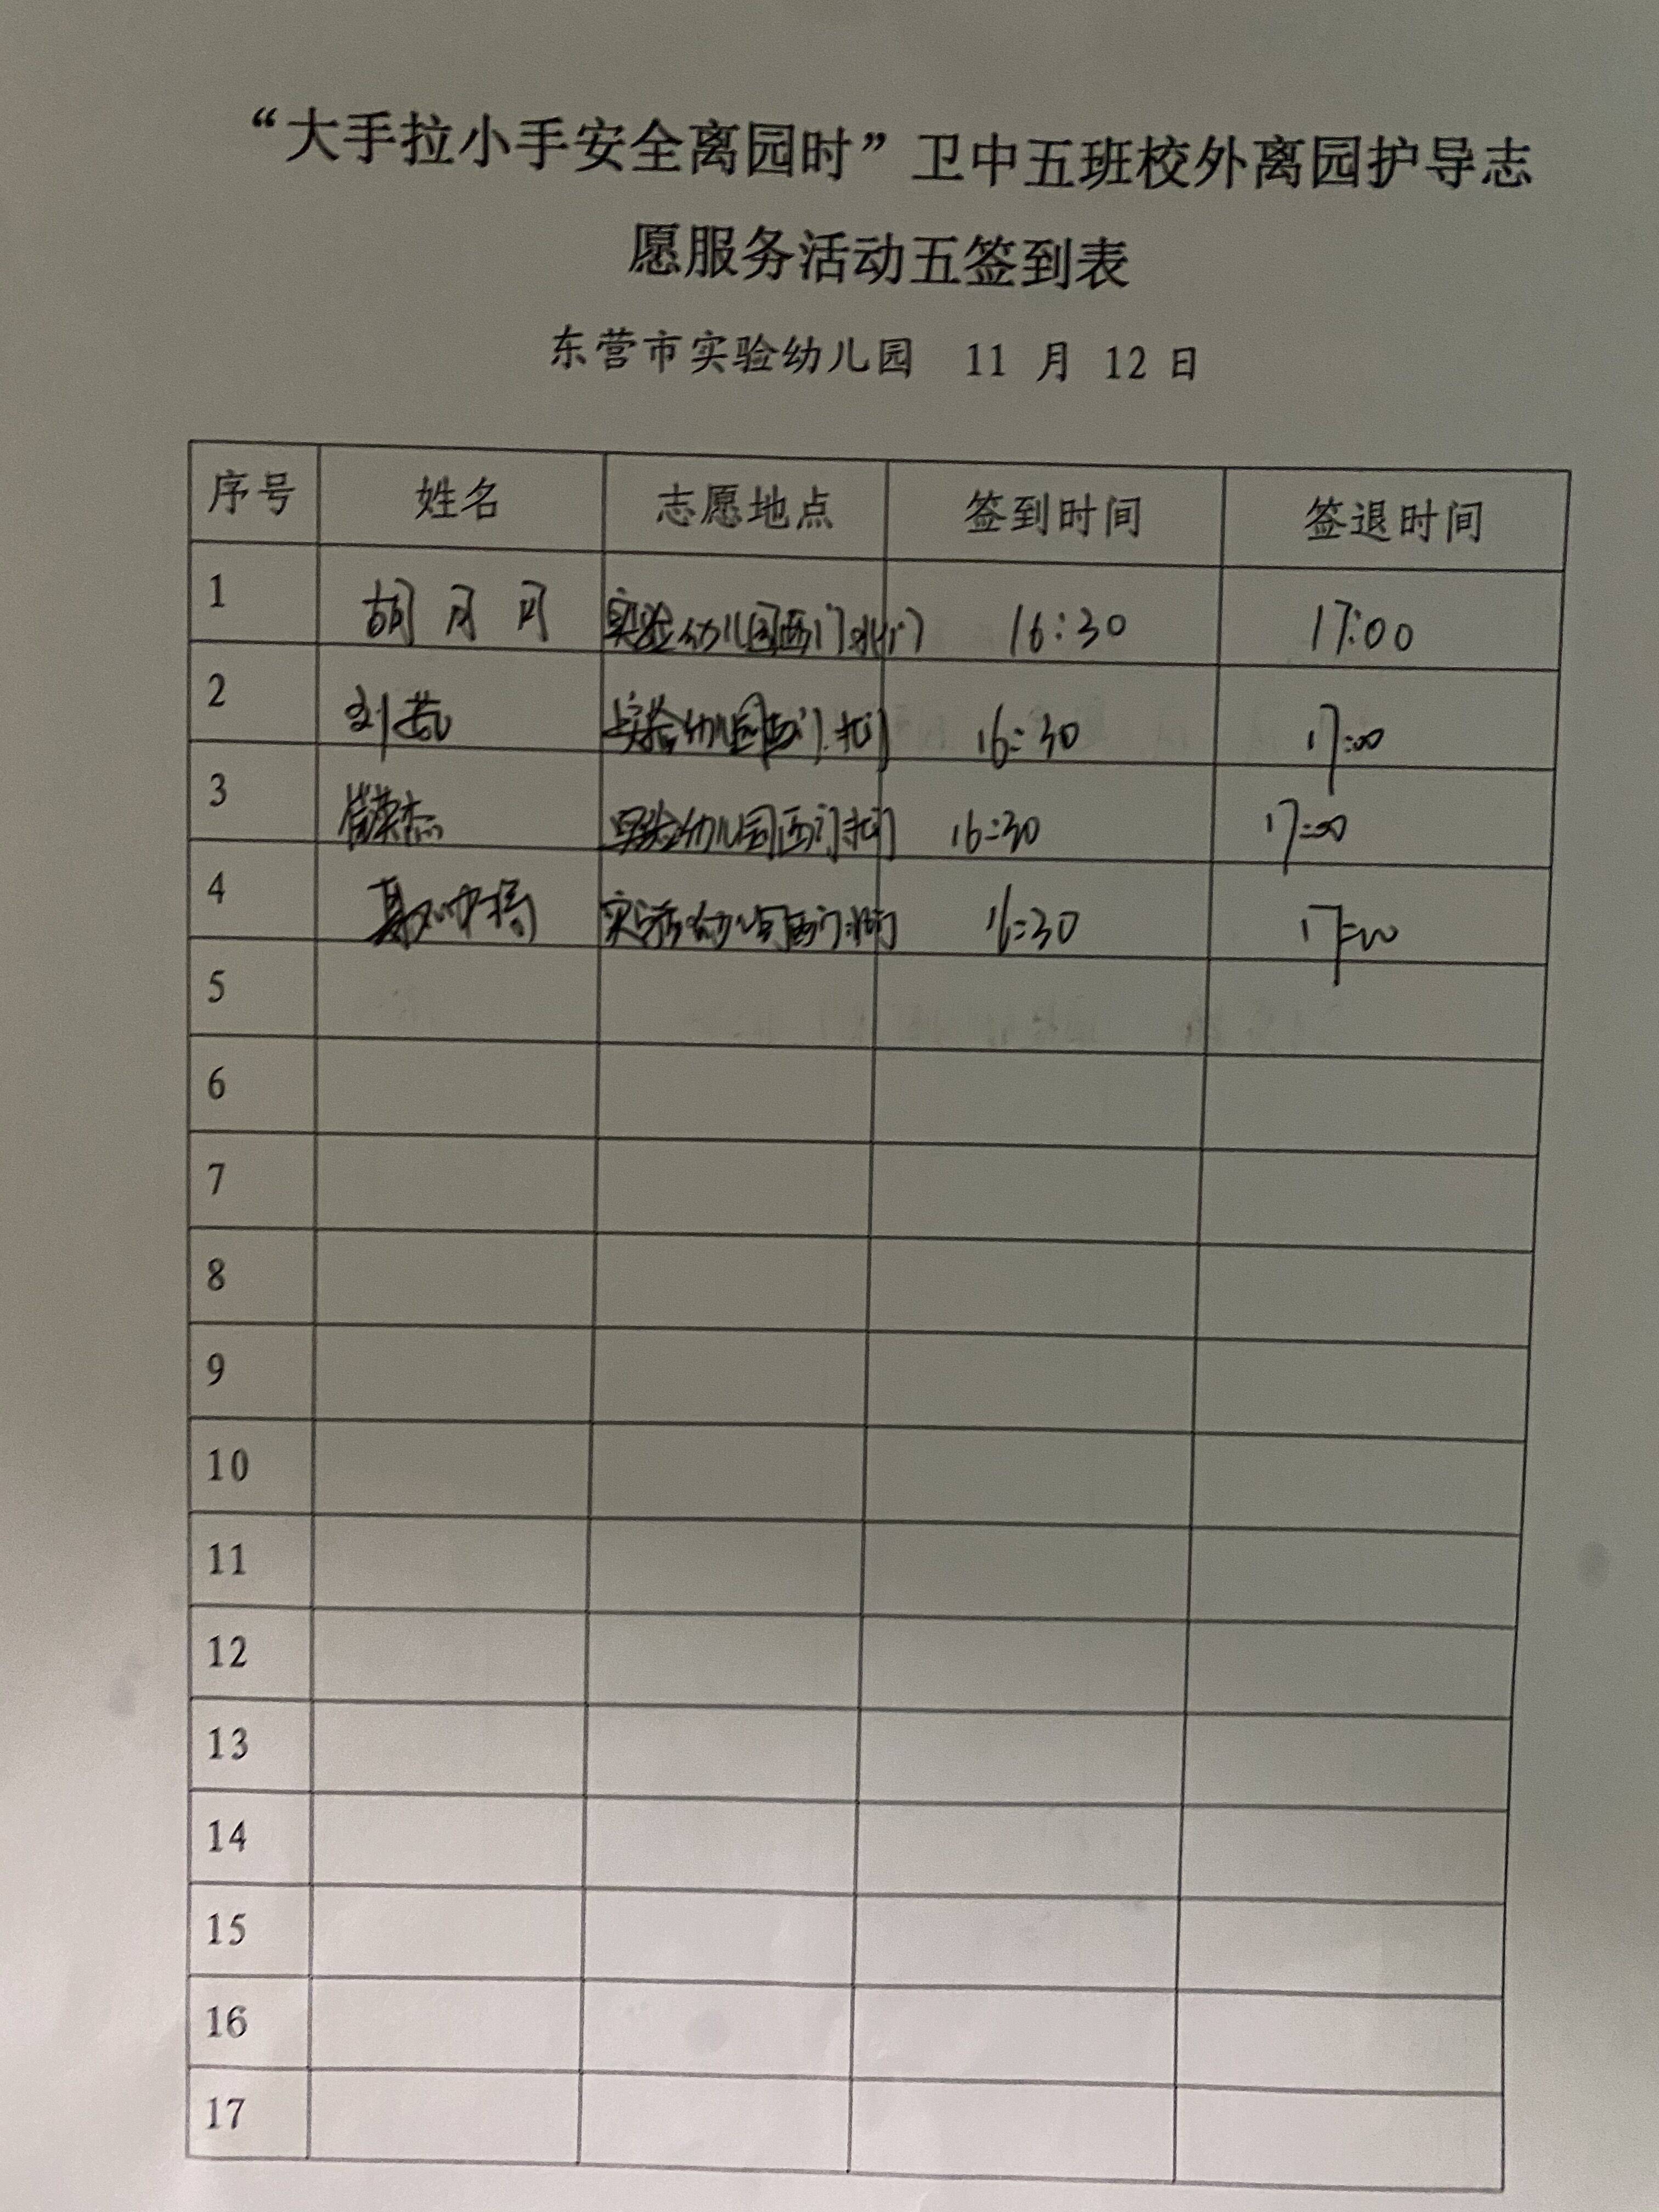 “大手拉小手安全离园时”卫中五班校外离园护导志
愿服务活动五签到表
东营市实验幼儿园 11 月 12 日
序号 姓名 志愿地点 签到时间 签退时间
1 胡月月 实验幼儿园西门北门 16:30 17:00
2 刘 实验幼儿园西门北门 16:30 17:00
3 实验幼儿园西门北门 16:30 17:00
4 实验幼儿园西门北门 16:30 17:00
5
6
7
8
9
10
11
12
13
14
15
16
17